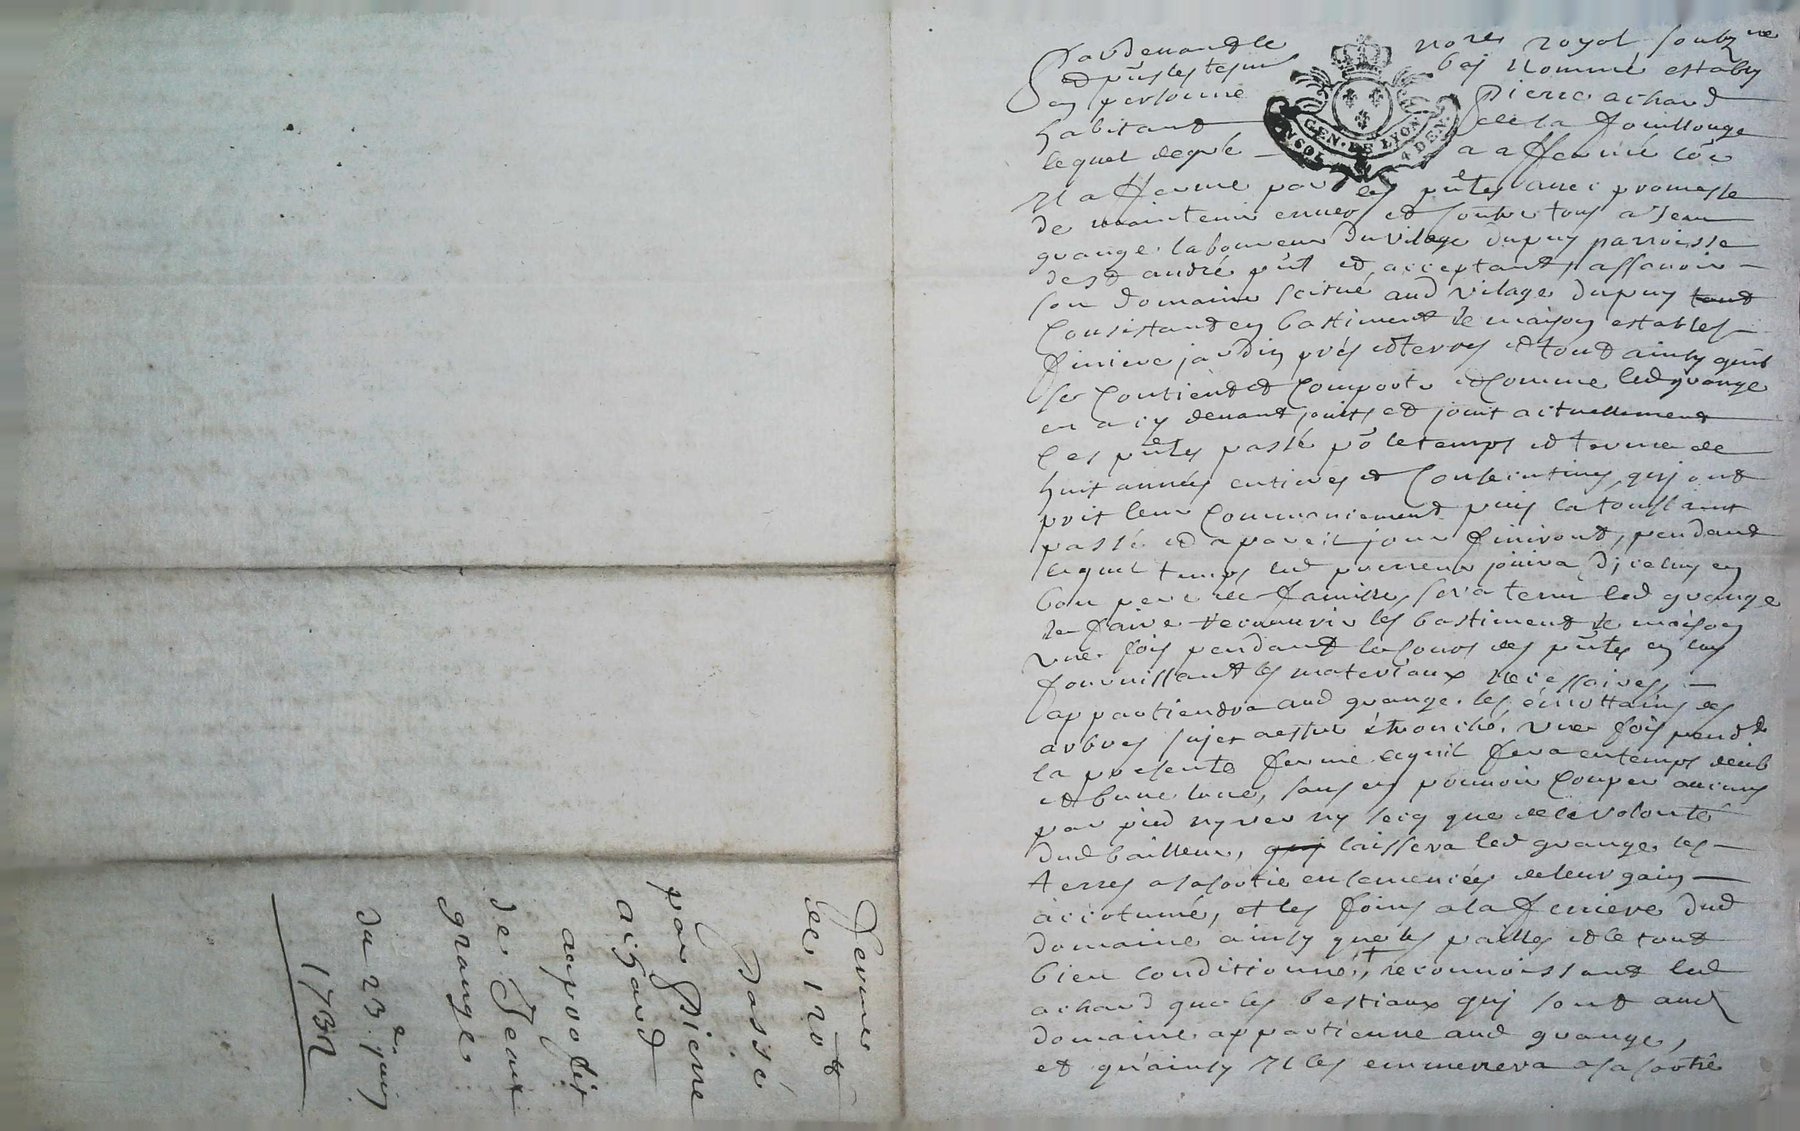 Pardevant le no.re royal soubz.ne
et p̄nts les tesm. bas nommé estably
en personne Pierre achard
habitant de la Fouillouze
lequel de gré a affermé co͞e
Il afferme par les p̄ntes avec promesse
de maintenir envers et contre tous a Jean
grange laboureur du vilage dupuy parroisse
de st andré p̄nt et acceptant, assavoir
son domaine scitué aud vilage dupuy tout
Consistant en bastiment de maison estables
feniere jardin prés et terres et tout ainsy quil
se Contient et Comporte et Comme led grange
en a cy devant jouits et jouit actuellement
Ces p̄ntes passé po. le temps et terme de
huit années entieres et Consecutives, qui ont
prit leur Commancement puis la toussaint
passé et a pareil jour finiront, pendant
lequel temps led preneur jouira d'iceluy en
bon pere de famille, sera tenu led grange
de faire recouvrir les bastiment de maison
une fois pendant le cours des p̄ntes en luy
fournissant les materiaux necessaires,
appartiendra aud grange les émottains des
arbres sujet a estre étronché, une fois pend.t
la presente ferme ce quil fera en temps deub
et bune lune, sans en pouvoir Couper aucuns
par pied ny ver ny secq que de la volonté
dud bailleur, qui laissera led grange les
terres a sa sortie ensemencées de leur gain
accotumé, et les foins a la feniere dud
domaine ainsy que les pailles et le tout
bien conditionné, + reconnoissant led
achard que les bestiaux qui sont aud
domaine appartienne aud grange,
et qu'ainsy Il les emmenera a sa sortie
GEN. DE LYON
UN SOL 4 DEN.
Ferme
de 120 tt
Passé
par Pierre
achard
au profit
de Jean
grange
du 23.e juin
1732